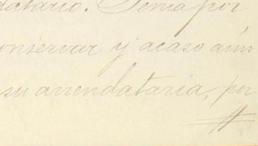 datario. Temia por
conservar y acaso aún
su arrendataria, por